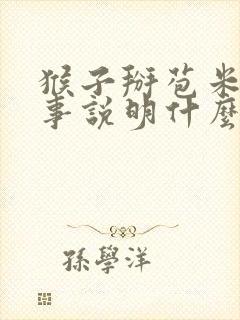 猴子掰苞米
事説明什麼
孫學洋